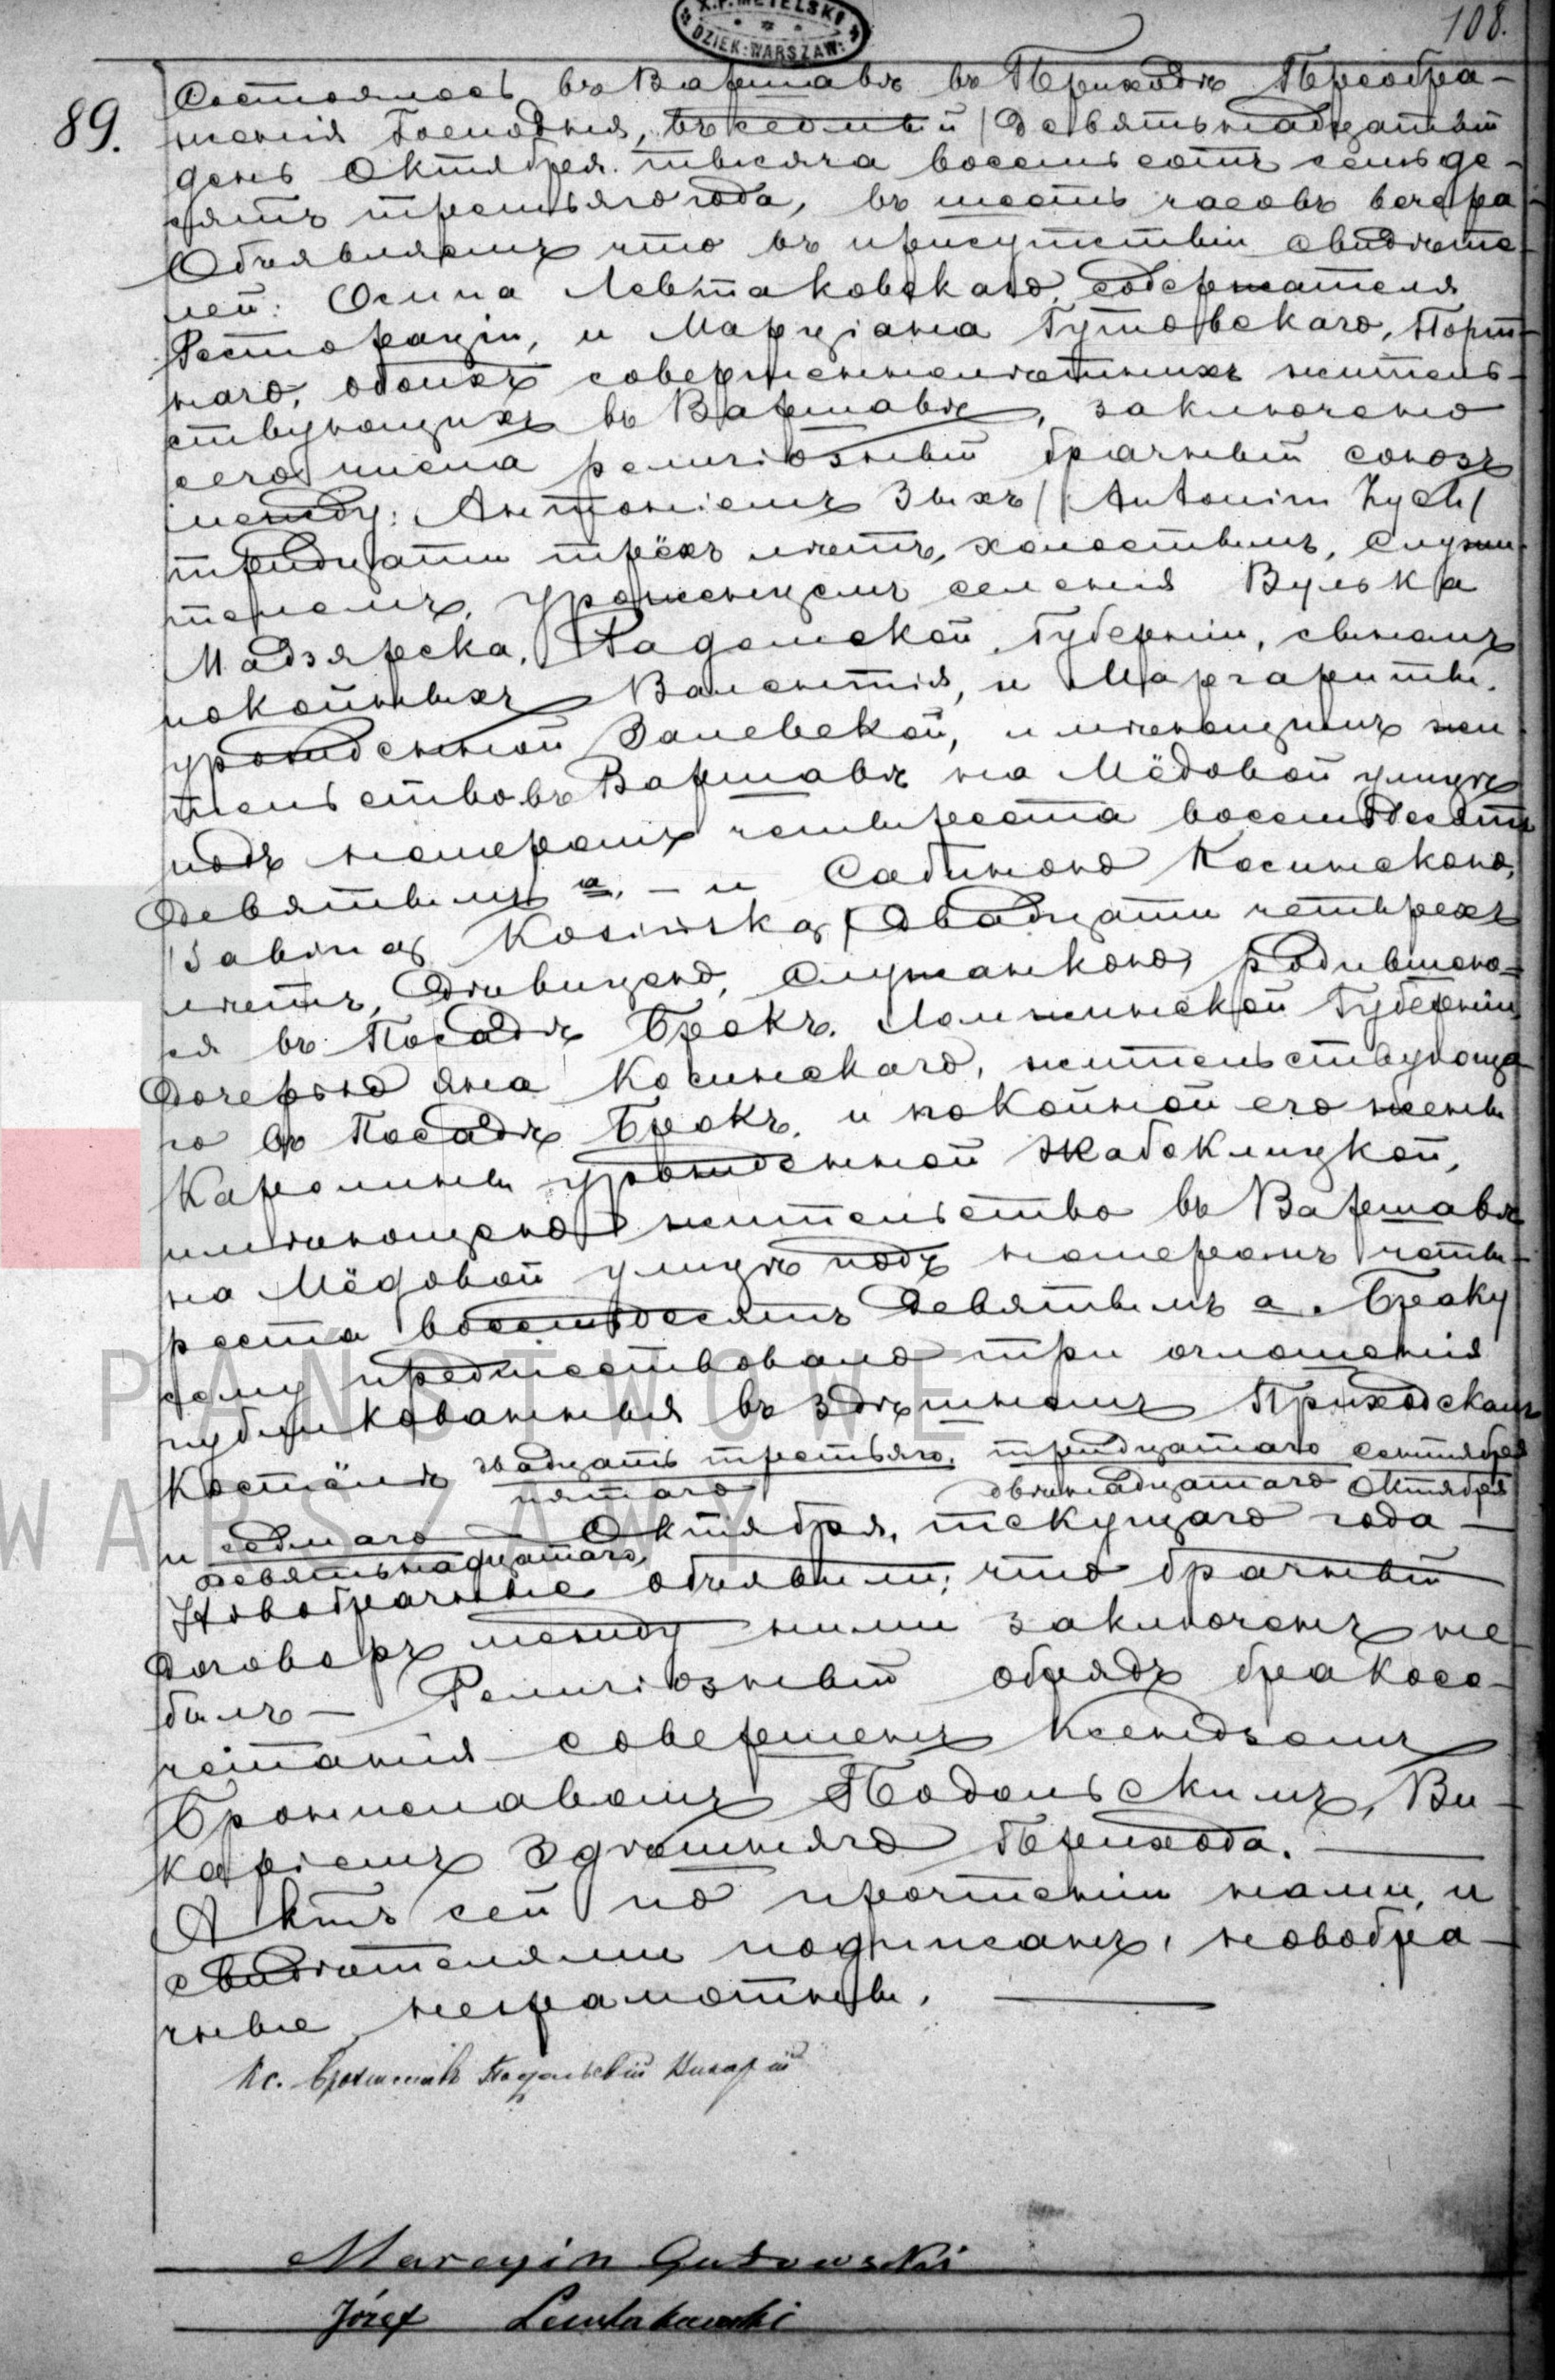 X.P. METELSKI
DZIEK: WARSZAW:
108.
89.
Состоялось въ Варшавѣ въ Приходѣ Преобра-
женія Господня, въ седмый / девятьнадцатый
день Октября тысяча восемьсотъ семьде-
сятъ третьяго года, въ шесть часовъ вечера
Объявляемъ что въ присутствіи свидѣте-
лей: Осипа Левтаковскаго, содержателя
Рестораціи, и Марціана Гутовскаго, Порт-
наго, обоихъ совершеннолѣтнихъ житель-
ствующихъ въ Варшавѣ, заключено
сего числа религіозный брачный союзъ
между: Антоніемъ Зыхъ / Antonim Zych /
тридцати трёхъ лѣтъ, холостымъ, служи-
телемъ, урожденцемъ селенія Вулька
Мадзярска, Радомской Губерніи, сыномъ
покойныхъ Валентія, и Маргариты
урожденной Залевской, имѣющимъ жи
тельство въ Варшавѣ на Мёдовой улицѣ
подъ номеромъ четыреста восемьдесятъ
девятымъ а. – и Сабиною Косинскою,
/ Sabiną Kosińską / двадцати четырехъ
лѣтъ, дѣвицею, служанкою, родившею-
ся въ Посадѣ Брокъ, Ломжинской Губерніи,
дочерью Яна Косинскаго, жительствующа
го въ Посадѣ Брокъ, и покойной его жены
Каролины урожденной Жабоклицкой,
имѣющею жительство въ Варшавѣ
на Мёдовой улицѣ подъ номеромъ четы-
реста восемьдесятъ девятымъ а. Браку
сему предшествовало три оглашенія
публикованныя въ здѣшномъ Приходскомъ
Костёлѣ двадцать третьяго, тридцатаго сентября
пятаго двѣнадцатаго Октября
и седмаго – Октября, текущаго года –
девятьнадцатаго,
Новобрачные объявили; что брачный
договоръ между ними заключенъ не
былъ – Религіозный обрядъ бракосо-
четанія совершенъ Ксендзомъ
Брониславомъ Подольскимъ, Ви-
каріемъ здѣшняго Прихода. –
Актъ сей по прочтеніи нами, и
свидѣтелями подписанъ, новобра-
чные неграмотны. –
Кс. Брониславъ Подольскій Викарій
Marcyin Gutowski
Józef Lewtakowski
PAŃSTWOWE
WARSZAWY